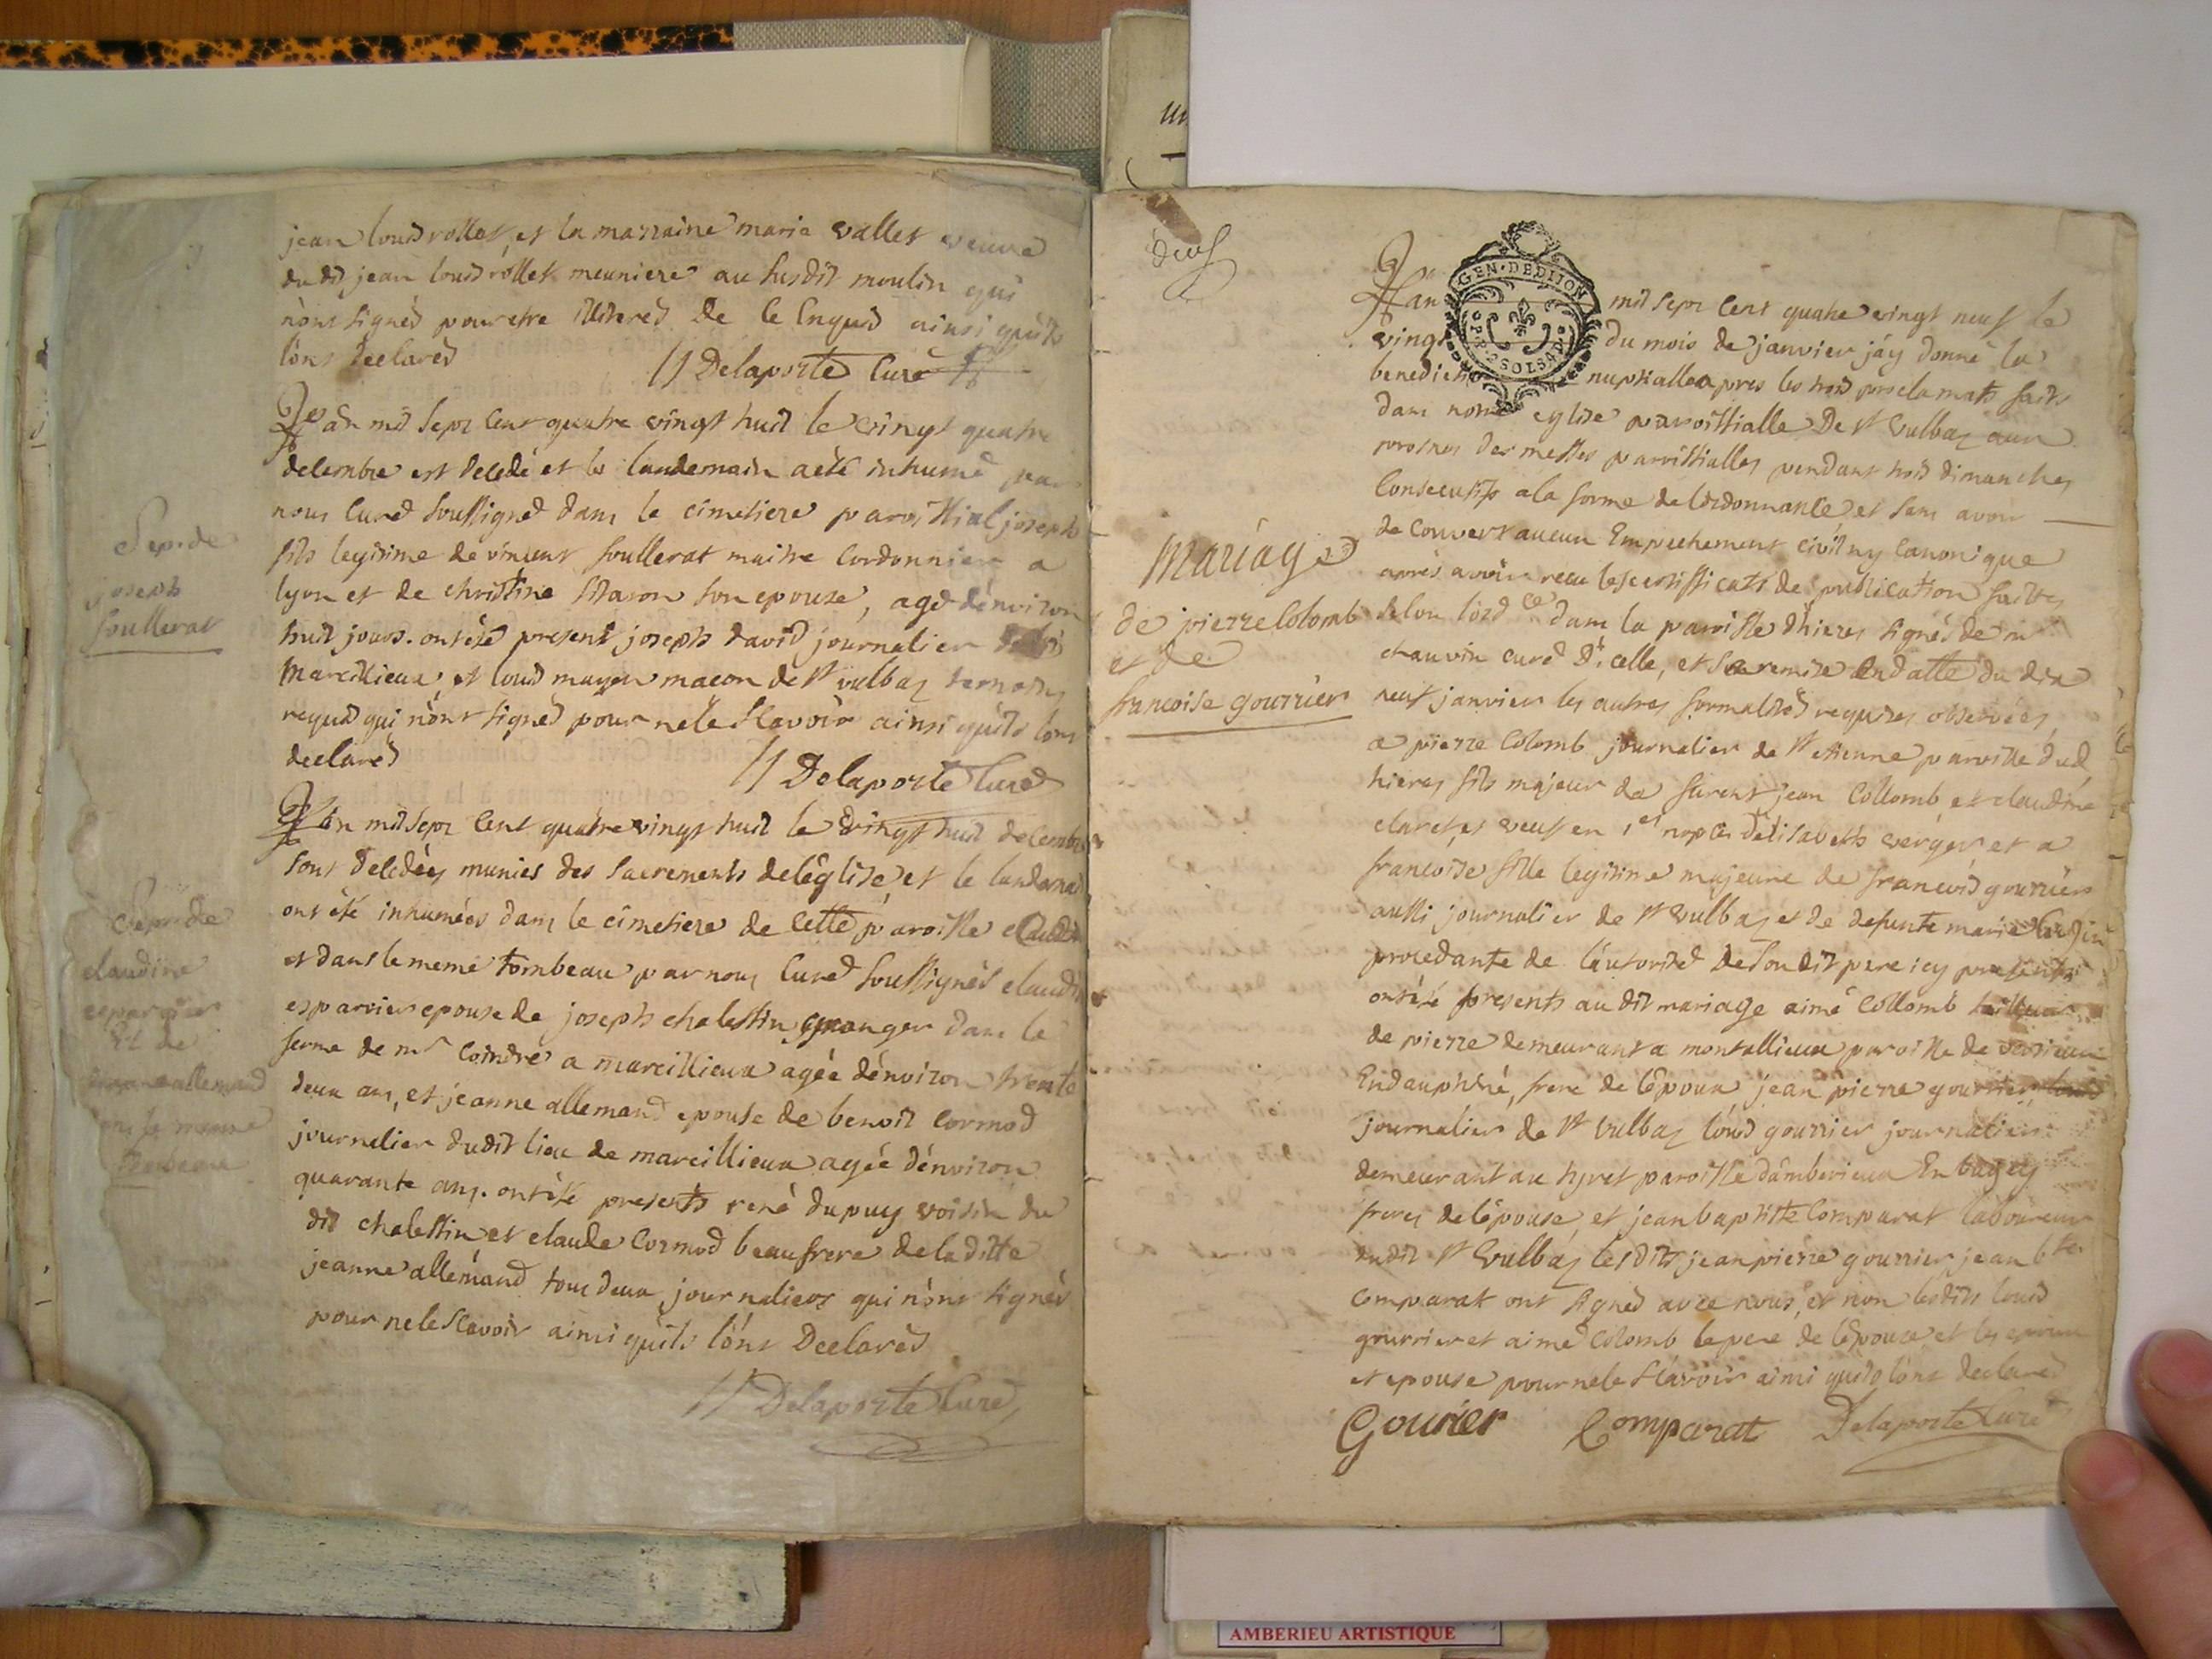 jean louis rollet, et la marraine marie vallet veuve
du dit jean louis rollet meuniere au susdit moulin qui
n'ont signés pour etre illiterés De ce Enquis ainsi qu'ils
l'ont declarés // Delaporte Curé
L'an mil sept cent quatre vingt huit le vingt quatre
decembre est decedé et le landemain a été inhumé par
nous Curé soussigné dans le cimetiere paroissial joseph
fils legitime de vincent soullerat maitre cordonnier a
lyon et de christine Maron son epouse, agé d'environ
huit jours. ont été present joseph david journalier
Marcillieux et louis mayou macon de st vulbaz temoins
requis qui n'ont signés pour ne le scavoir ainsi qu'ils l'ont
declarés // Delaporte Curé
Sep. de
joseph
soullerat
L'an mil sept cent quatre vingt huit le vingt huit decembre
sont decedées munies des sacrements de l'église et le landemain
ont été inhumées dans le cimetiere de cette paroisse
et dans le meme tombeau par nous Curé soussignés
esparvier epouse de joseph chalestin granger dans la
ferme de mr Coindre a marcillieux agée d'environ trente
deux ans, et jeanne allemand epouse de benoit Cormod
journalier dudit lieu de marcillieux agée d'environ
quarante ans. ont été presents rené dupuy voisin du
dit chalestin et claude Cormod beaufrere de la ditte
jeanne allemand tous deux journaliers qui n'ont signés
pour ne le scavoir ainsi qu'ils l'ont Declarés
// Delaporte Curé
Sep. de
claudine
esparvier
Et de
allemand
meme
tombeau
deux
GEN. DE DIJON
L'an mil sept cent quatre vingt neuf le
vingt du mois de janvier j'ay donné la
benedict nuptialle apres les trois proclamats faits
dans notre eglise paroissialle De st vulbaz aux
prosnes des messes parroissialles pendant trois dimanches
Consecutifs a la forme de l'ordonnance et sans avoir
decouvert aucun Empechement civil ny canonique
aprés avoir recu les certifficats de publication faittes
selon l'ord ce dans la paroisse d'hieres signés de mr
chauvin curé d'icelle, et sa remise En datte du dix
neuf janvier les autres formalités requises observées,
a pierre Colomb journalier de st etienne paroisse dud
hieres fils majeur de furent jean Collomb et claudine
claret, et veuf en 1er nopces d'elisabeth verger et a
francoise fille legitime majeure de francois gourrier
aussi journalier de st vulbaz et de defunte marie
procedante de l'autorité De son dit pere icy present
ont été presents au dit mariage aimé Collomb tailleur
de pierre demeurant a montallieux paroisse de
En dauphiné, frere de l'epoux jean pierre gourrier
journalier de st vulbaz louis gourrier journalier
demeurant au tiret paroisse d'amberieux En bugey
freres de l'épouse, et jean baptiste Comparat laboureur
dudit st vulbaz lesdits jean pierre gourrier jean bte
Comparat ont signés avec nous, et non lesdits louis
gourrier et aimé Colomb le pere de l'epouse et les epoux
et epouse pour ne le scavoir ainsi qu'ils l'ont declarés
Gourier Comparat Delaporte Curé
Mariage
de pierre Colomb
et de
francoise gourrier
AMBERIEU ARTISTIQUE